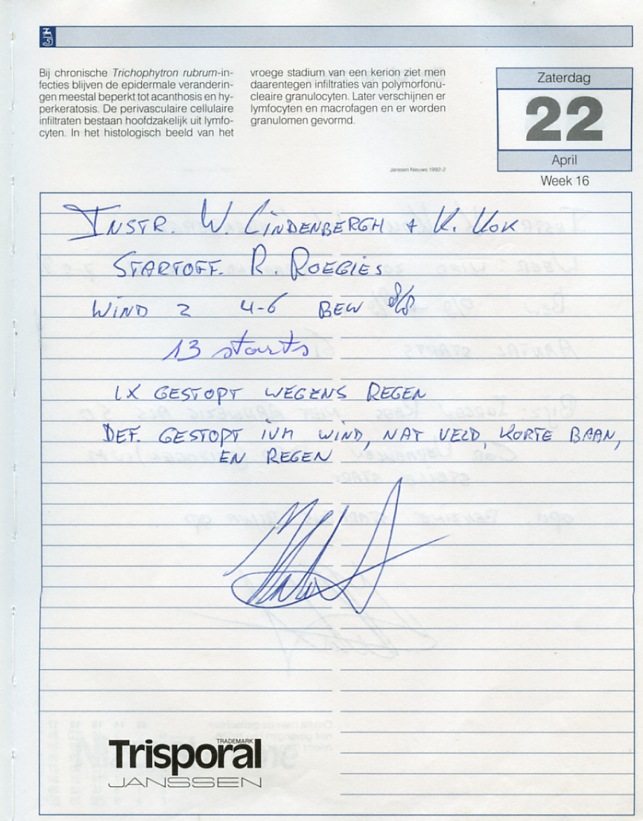 Bij chronische Trichophytron rubrum-in-
fecties blijven de epidermale veranderin-
gen meestal beperkt tot acanthosis en hy-
perkeratosis. De perivasculaire cellulaire
infiltraten bestaan hoofdzakelijk uit lymfo-
cyten. In het histologisch beeld van het
vroege stadium van een kerion ziet men
daarentegen infiltraties van polymorfonu-
cleaire granulocyten. Later verschijnen er
lymfocyten en macrofagen en er worden
granulomen gevormd.
Janssen Nieuws 1992-2
Zaterdag
22
April
Week 16
INSTR. W. LINDENBERGH + K. KOK
STARTOFF. R. ROEGIES
WIND 2 4-6 BEW 8/8
13 starts
1X GESTOPT WEGENS REGEN
DEF. GESTOPT IVM WIND, NAT VELD, KORTE BAAN,
EN REGEN
TRADEMARK
Trisporal
JANSSEN